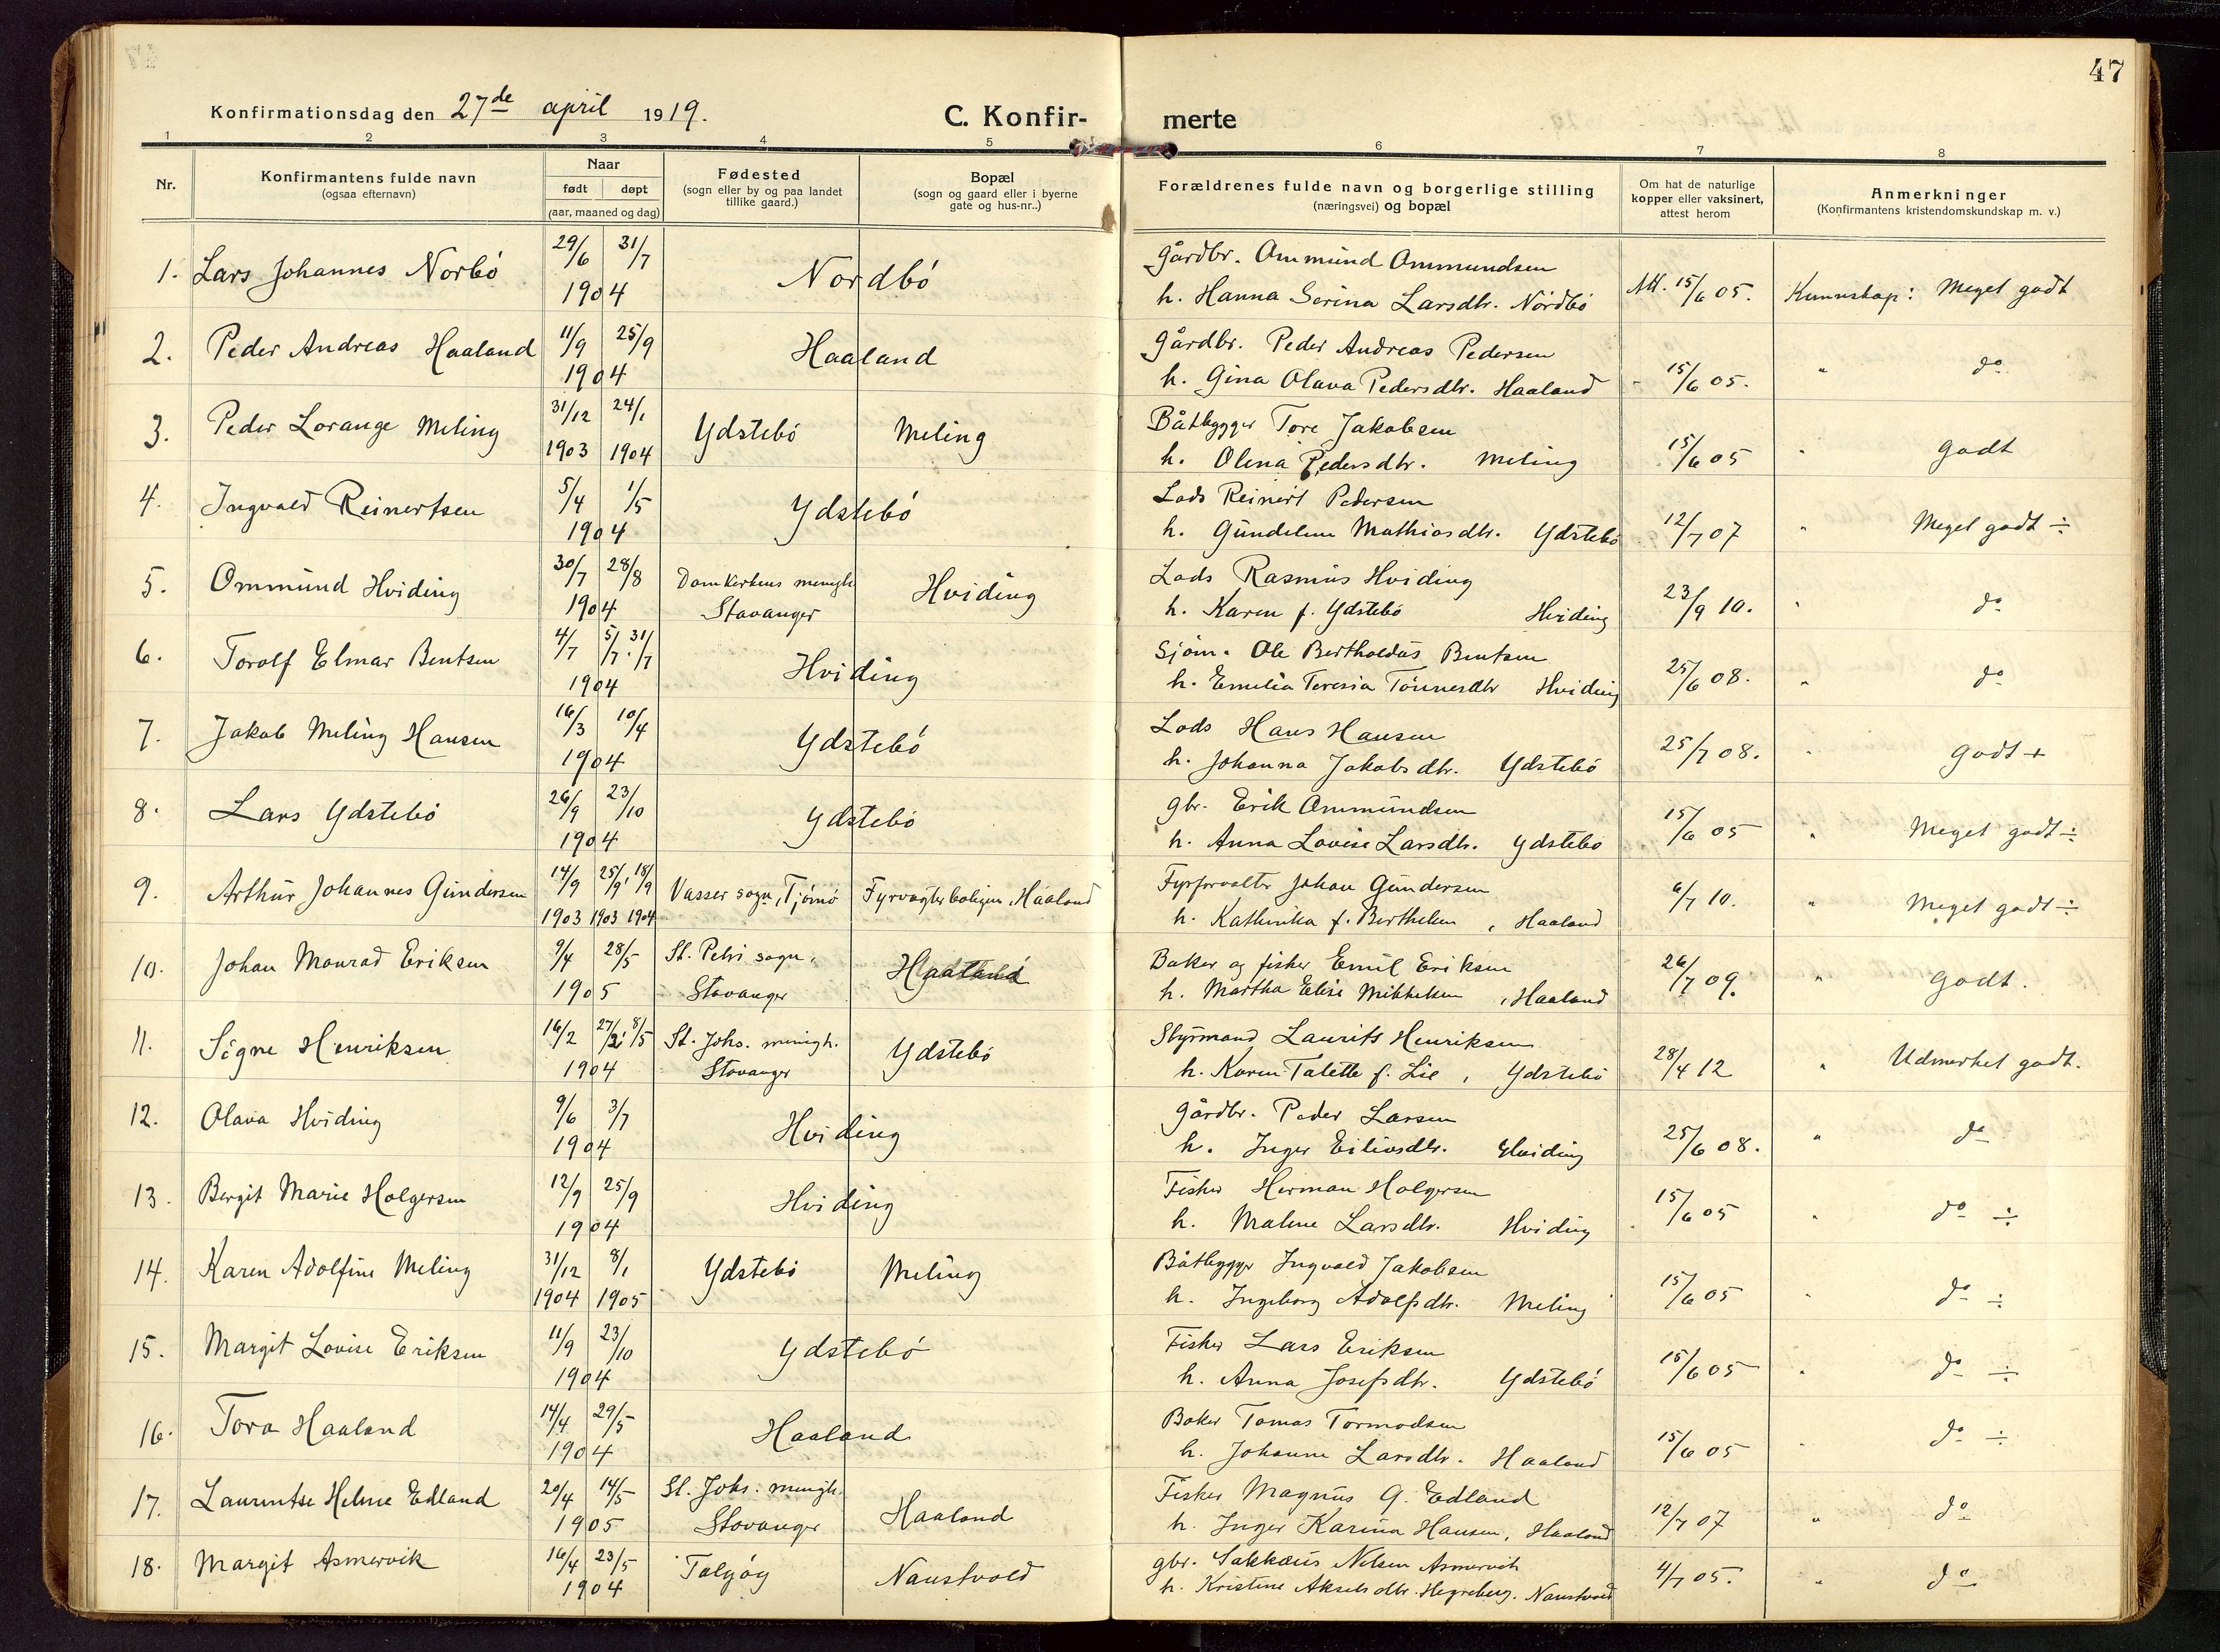 47
Konfirmationsdag den 27de april 1919.
C. Konfir-
merte
1 2 3 4 5 6 7 8
Nr.
Konfirmantens fulde navn
(ogsaa efternavn)
Naar
født døpt
(aar, maaned og dag)
Fødested
(sogn eller by og paa landet
tillike gaard.)
Bopæl
(sogn og gaard eller i byerne
gate og hus-nr..)
Forældrenes fulde navn og borgerlige stilling
(næringsvei) og bopæl
Om hat de naturlige
kopper eller vaksinert,
attest herom
Anmerkninger
(Konfirmantens kristendomskundskap m. v.)
1. Lars Johannes Norbó 29/6 31/7 1904 Nordbó
Gårdbr. Ommund Ommundsen
h. Hanna Serina Larsdtr. Nordbó
Att. 15/6 05. Kunnskap: Meget godt
2. Peder Andreas Haaland 11/9 25/9 1904 Haaland
Gårdbr. Peder Andreas Pedersen
h. Gina Olava Pedersdtr. Haaland
- 15/6 05. " do
3. Peder Lorange Meling 31/12 1903 24/1 1904 Ydstebó Meling
Båtbygger Tore Jakobsen
h. Olena Pedersdtr. Meling
15/6 05 " Godt
4. Ingvald Reinertsen 5/4 1/5 1904 Ydstebó
Lods Reinert Pedersen
h. Gundelene Mathiasdtr. Ydstebó
12/7 07 " Meget godt ÷
5. Ommund Hviding 30/7 28/8 1904 Domkirkens menigh Stavanger Hviding
Lods Rasmus Hviding
h. Karen f. Ydstebó Hviding
23/9 10. " do
6. Torolf Elmar Bentsen 4/7 5/7. 31/7 1904 Hviding
Sjöm. Ole Bertholdus Bentsen
h. Emelia Teresia Tönnesdtr Hviding
25/6 08. " do
7. Jakob Meling Hansen 16/3 10/4 1904 Ydstebó
Lods Hans Hansen
h. Johanna Jakobsdtr. Ydstebó
25/7 08. " Godt +
8. Lars Ydstebó 26/9 23/10 1904 Ydstebó
Gbr. Erik Ommundsen
h. Anna Lovise Larsdtr. Ydstebó
15/6 05 " Meget godt ÷
9. Arthur Johannes Gundersen 14/9 1903 25/9, 1903 18/9 1904 Vasser sogn, Tjömö Fyrvogterboligen, Haaland
Fyrforvalter Johan Gundersen
h. Kathinka f. Berthelsen, Haaland
6/7 10. " Meget godt ÷
10. Johan Monrad Eriksen 9/4 28/5 1905 St. Petri sogn, Stavanger Haaland
Baker og fisker Emil Eriksen
h. Martha Elise Mikkelsen, Haaland
26/7 09. " Godt.
11. Signe Henriksen 16/2 27/2, 8/5 1904 St. Johs. menigh. Stavanger Ydstebó
Styrmand Laurits Henriksen
h. Karen Talette f. Lie, Ydstebó
28/4 12 " Udmerket godt.
12. Olava Hviding 9/6 3/7 1904 Hviding
Gårdbr. Peder Larsen
h. Inger Eiliosdtr. Hviding
25/6 08. " do
13. Bergit Marie Holgersen 12/9 25/9 1904 Hviding
Fisker Herman Holgersen
h. Malene Larsdtr. Hviding
15/6 05 " do ÷
14. Karen Adolfine Meling 31/12 1904 8/1 1905 Ydstebó Meling
Båtbygger Ingvald Jakobsen
h. Ingeborg Adolfsdtr. Meling
15/6 05 " do ÷
15. Margit Lovise Eriksen 11/9 23/10 1904 Ydstebó
Fisker Lars Eriksen
h. Anna Josefsdtr. Ydstebó
15/6 05 " do ÷
16. Tora Haaland 14/4 29/5 1904 Haaland
Baker Tomas Tormodsen
h. Johanne Larsdtr. Haaland
15/6 05 " do ÷
17. Laurentse Helene Edland 20/4 14/5 1905 St. Johs. menigh. Stavanger Haaland
Fisker Magnus G. Edland
h. Inger Karina Hansen, Haaland
12/7 07 " do
18. Margit Asmervik 16/4 23/5 1904 Talgöy Naustvold
gbr. Sakkæus Nelsen Asmervik
h. Kristine Akselsdtr. Hegreberg. Naustvold
4/7 05. " do